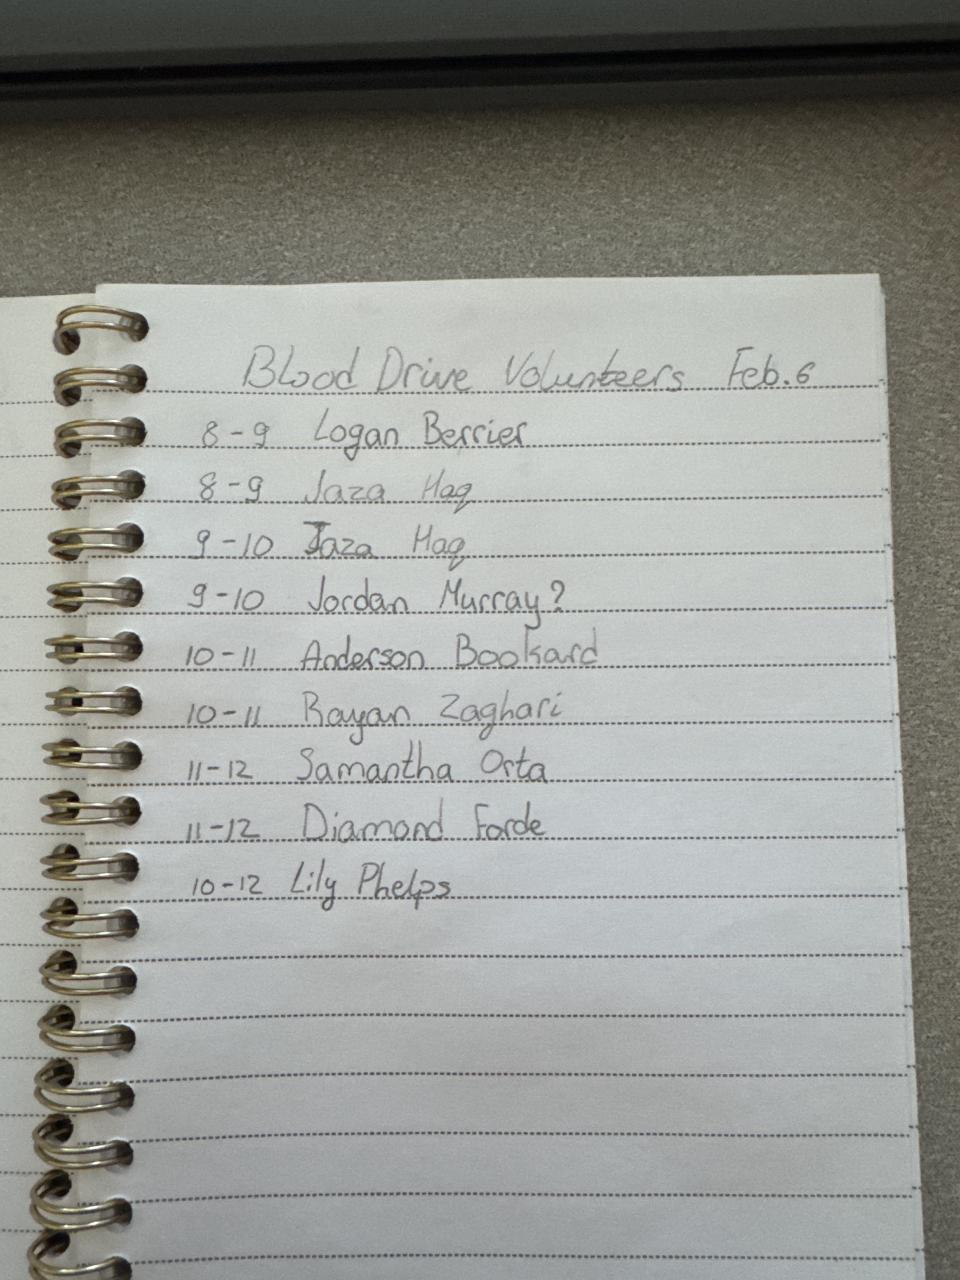 Blood Drive Volunteers Feb. 6
8-9 Logan Berrier
8-9 Jaza Haq
9-10 Jaza Haq
9-10 Jordan Murray?
10-11 Anderson Bookard
10-11 Rayan Zaghari
11-12 Samantha Orta
11-12 Diamond Forde
10-12 Lily Phelps